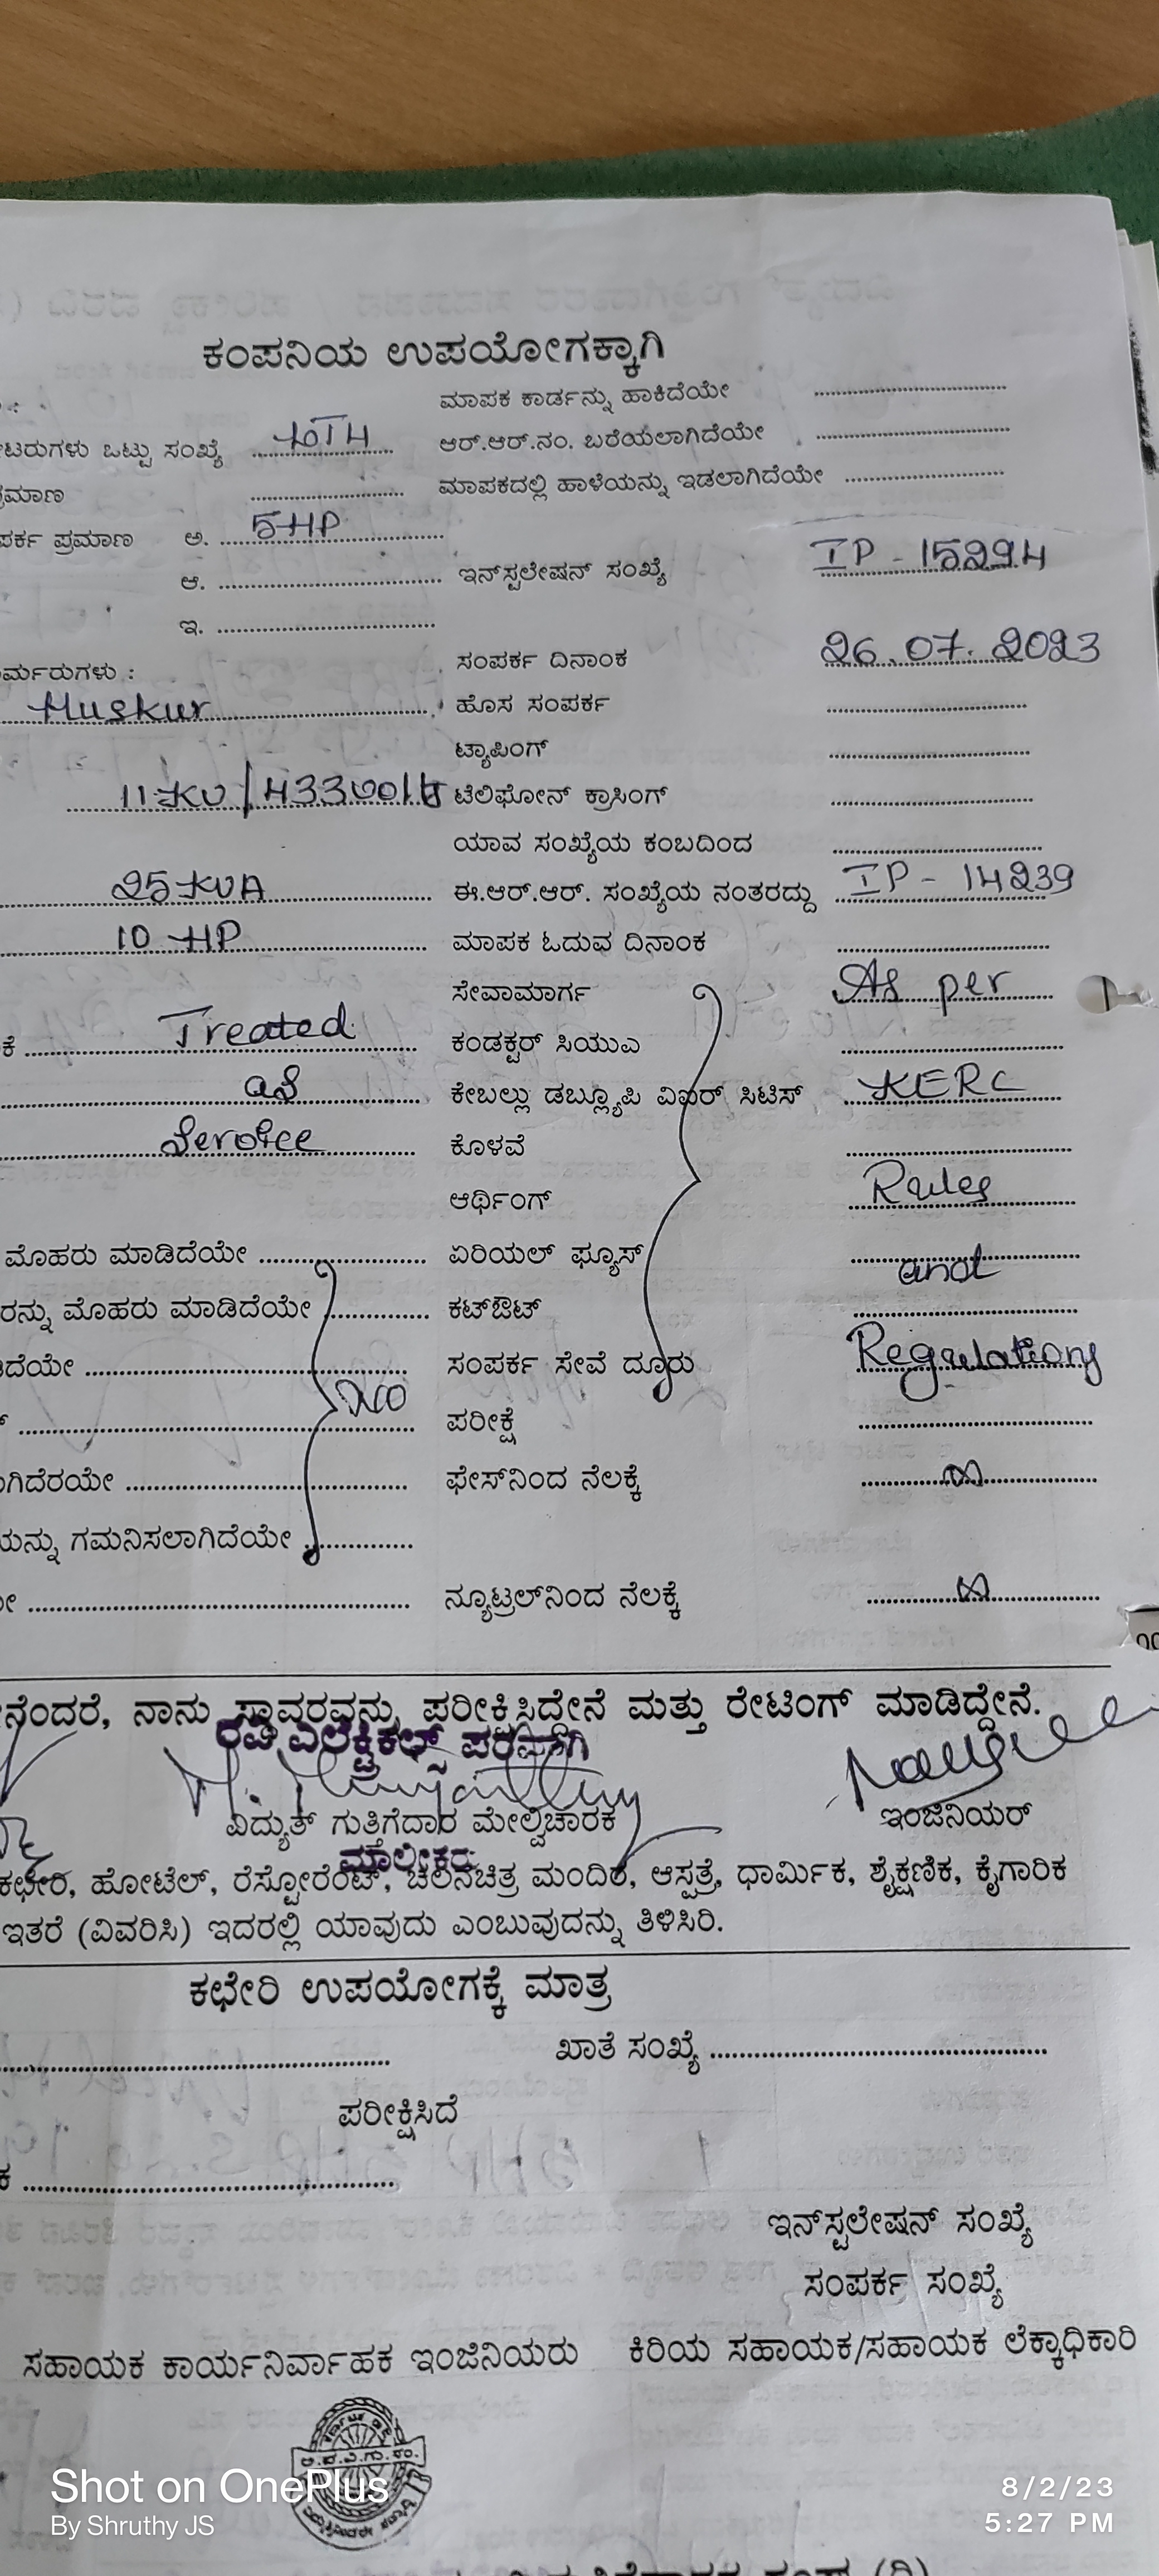 ಕಂಪನಿಯ ಉಪಯೋಗಕ್ಕಾಗಿ
ಮಾಪಕ ಕಾರ್ಡನ್ನು ಹಾಕಿದೆಯೇ
ಟರುಗಳು ಒಟ್ಟು ಸಂಖ್ಯೆ ಆರ್.ಆರ್.ನಂ. ಬರೆಯಲಾಗಿದೆಯೇ
ಮಾಣ ಮಾಪಕದಲ್ಲಿ ಹಾಳೆಯನ್ನು ಇಡಲಾಗಿದೆಯೇ
ಪರ್ಕ ಪ್ರಮಾಣ ಅ. 5 HP
ಆ. ಇನ್‌ಸ್ಟಲೇಷನ್ ಸಂಖ್ಯೆ IP - 15294
ಇ.
ರ್ಮರುಗಳು : ಸಂಪರ್ಕ ದಿನಾಂಕ 26.07.2023
Huskur ಹೊಸ ಸಂಪರ್ಕ
ಟ್ಯಾಪಿಂಗ್
11 KV / 433 volt ಟೆಲಿಫೋನ್ ಕ್ರಾಸಿಂಗ್
ಯಾವ ಸಂಖ್ಯೆಯ ಕಂಬದಿಂದ
25 KVA ಈ.ಆರ್.ಆರ್. ಸಂಖ್ಯೆಯ ನಂತರದ್ದು IP - 14239
10 HP ಮಾಪಕ ಓದುವ ದಿನಾಂಕ
ಸೇವಾಮಾರ್ಗ As per
ಕೆ Treated ಕಂಡಕ್ಟರ್ ಸಿಯುಎ
as ಕೇಬಲ್ಲು ಡಬ್ಲ್ಯೂಪಿ ವಿಐರ್ ಸಿಟಿಸ್ KERC
Service ಕೊಳವೆ
ಆರ್ಥಿಂಗ್ Rules
ಮೊಹರು ಮಾಡಿದೆಯೇ ಏರಿಯಲ್ ಫ್ಯೂಸ್ and
ರನ್ನು ಮೊಹರು ಮಾಡಿದೆಯೇ ಕಟ್‌ಔಟ್
ದೆಯೇ ಸಂಪರ್ಕ ಸೇವೆ ದ್ದೂರು Regulations
ಪರೀಕ್ಷೆ
ಗಿದೆರಯೇ ಫೇಸ್‌ನಿಂದ ನೆಲಕ್ಕೆ ∞
ಯನ್ನು ಗಮನಿಸಲಾಗಿದೆಯೇ
ನ್ಯೂಟ್ರಲ್‌ನಿಂದ ನೆಲಕ್ಕೆ ∞
ನೆಂದರೆ, ನಾನು ಸ್ಥಾವರವನ್ನು ಪರೀಕ್ಷಿಸಿದ್ದೇನೆ ಮತ್ತು ರೇಟಿಂಗ್ ಮಾಡಿದ್ದೇನೆ.
ರವಿ ಎಲೆಕ್ಟ್ರಿಕಲ್ಸ್ ಪರವಾಗಿ
ವಿದ್ಯುತ್ ಗುತ್ತಿಗೆದಾರ ಮೇಲ್ವಿಚಾರಕ ಇಂಜಿನಿಯರ್
ಮಾಲೀಕರು
ಕಛೇರಿ, ಹೋಟೆಲ್, ರೆಸ್ಟೋರೆಂಟ್, ಚಲನಚಿತ್ರ ಮಂದಿರ, ಆಸ್ಪತ್ರೆ, ಧಾರ್ಮಿಕ, ಶೈಕ್ಷಣಿಕ, ಕೈಗಾರಿಕ
ಇತರೆ (ವಿವರಿಸಿ) ಇದರಲ್ಲಿ ಯಾವುದು ಎಂಬುವುದನ್ನು ತಿಳಿಸಿರಿ.
ಕಛೇರಿ ಉಪಯೋಗಕ್ಕೆ ಮಾತ್ರ
ಖಾತೆ ಸಂಖ್ಯೆ
ಪರೀಕ್ಷಿಸಿದೆ
ಇನ್‌ಸ್ಟಲೇಷನ್ ಸಂಖ್ಯೆ
ಸಂಪರ್ಕ ಸಂಖ್ಯೆ
ಸಹಾಯಕ ಕಾರ್ಯನಿರ್ವಾಹಕ ಇಂಜಿನಿಯರು ಕಿರಿಯ ಸಹಾಯಕ/ಸಹಾಯಕ ಲೆಕ್ಕಾಧಿಕಾರಿ
Shot on OnePlus
By Shruthy JS
8/2/23
5:27 PM